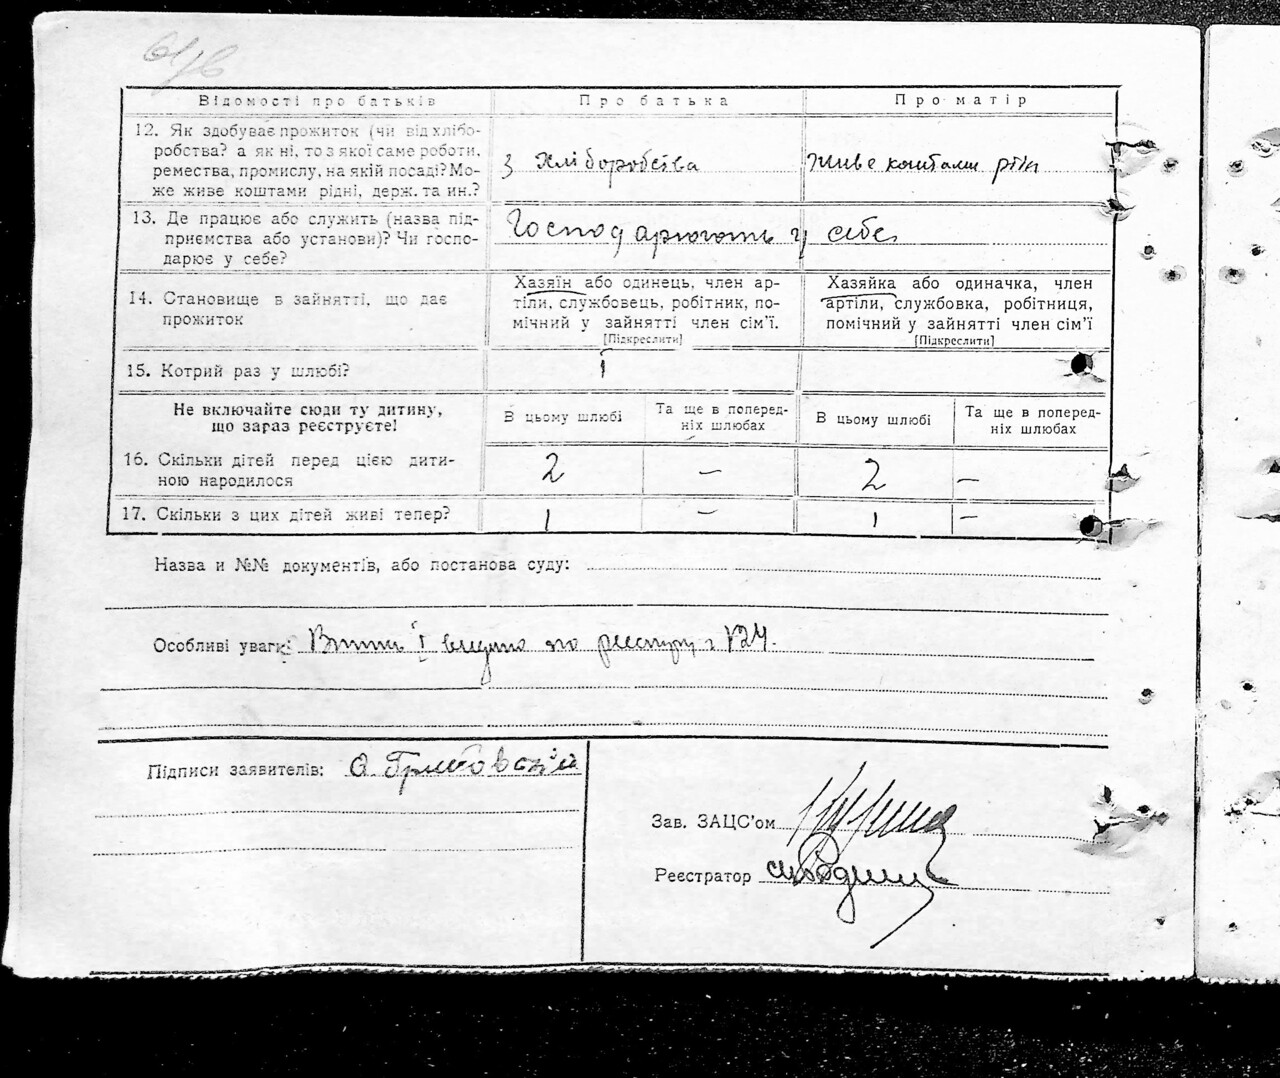 Відомості про батьків Про батька Про матір
12. Як здобуває прожиток (чи від хлібо-
робства? а як ні, то з якої саме роботи,
ремества, промислу, на якій посаді? Мо-
же живе коштами рідні, держ. та ин.?
з хліборобства живе коштами рідн
13. Де працює або служить (назва під-
приємства або установи)? Чи госпо-
дарює у себе?
Господарюють у себе
14. Становище в зайнятті, що дає
прожиток
Хазяїн або одинець, член ар-
тіли, службовець, робітник, по-
мічний у зайнятті член сім'ї.
[Підкреслити]
Хазяйка або одиначка, член
артіли, службовка, робітниця,
помічний у зайнятті член сім'ї
[Підкреслити]
15. Котрий раз у шлюбі? 1
Не включайте сюди ту дитину,
що зараз реєструєте!
В цьому шлюбі
Та ще в поперед-
ніх шлюбах
В цьому шлюбі
Та ще в поперед-
ніх шлюбах
16. Скільки дітей перед цією дити-
ною народилося
2 — 2 —
17. Скільки з цих дітей живі тепер? 1 — 1 —
Назва и №№ документів, або постанова суду:
Особливі уваги: по реєстру
Підписи заявителів: О. Грибовський
Зав. ЗАЦС'ом
Реєстратор